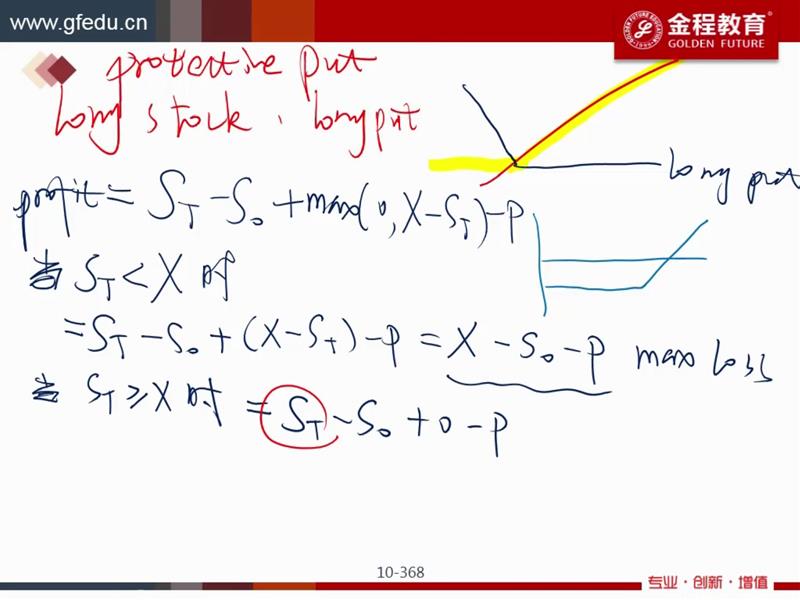 www.gfedu.cn
金程教育
GOLDEN FUTURE
protective put
long stock, long put
long put
profit = S_T - S_0 + max(0, X - S_T) - P
当 S_T < X 时
= S_T - S_0 + (X - S_T) - P = X - S_0 - P max loss
当 S_T ≥ X 时 = S_T - S_0 + 0 - P
10-368
专业·创新·增值